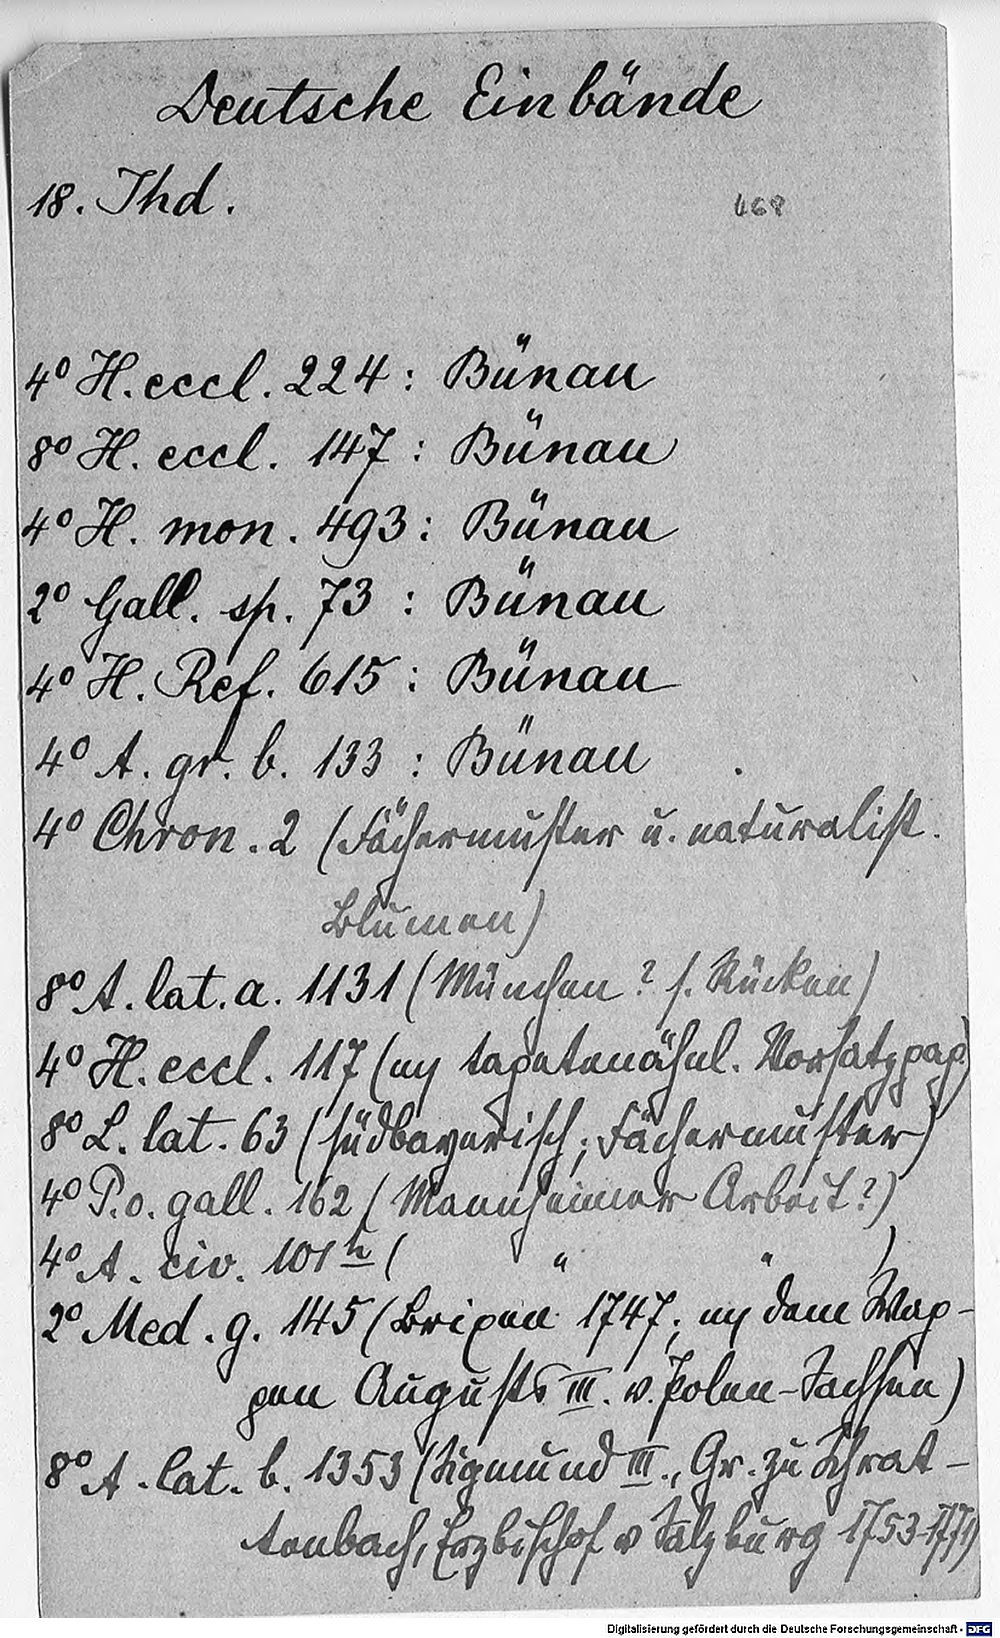 Deutsche Einbände
18. Jhd.
468
4° H. eccl. 224 : Bünau
8° H. eccl. 147 : Bünau
4° H. mon. 493 : Bünau
2° Gall. sp. 73 : Bünau
4° H. Ref. 615 : Bünau
4° A. gr. b. 133 : Bünau
4° Chron. 2 (Fächermuster u. naturalist.
Blumen)
8° A. lat. a. 1131 (München? s. Rücken)
4° H. eccl. 117 (m tapetenähnl. Vorsatzpap.)
8° L. lat. 63 (südbayerisch; Fächermuster)
4° P. o. gall. 162 (Mannheimer Arbeit?)
4° A. civ. 101 h ( " " )
2° Med. g. 145 (Brixen 1747; m dem Wap-
pen Augusts III. v. Polen-Sachsen)
8° A. lat. b. 1353 (Sigmund III., Gr. zu Schrat-
tenbach, Erzbischof v Salzburg 1753-1771)
Digitalisierung gefördert durch die Deutsche Forschungsgemeinschaft - DFG